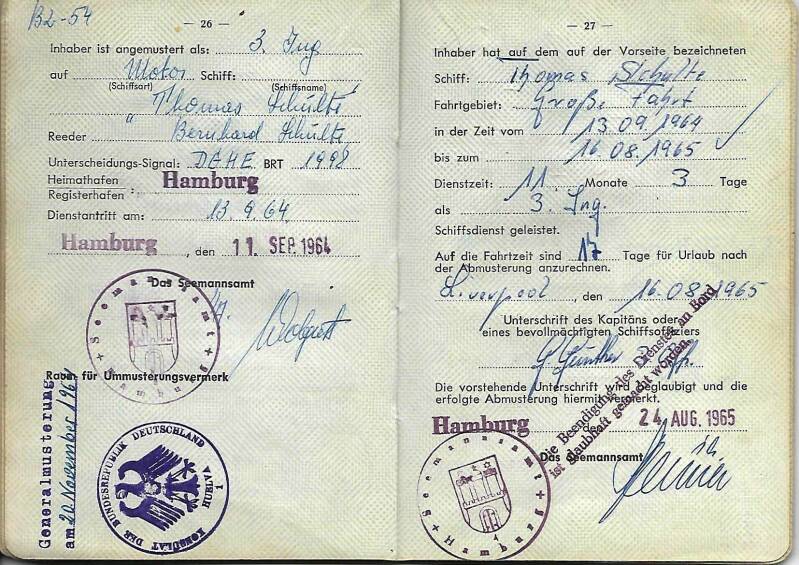 B2-54
— 26 —
Inhaber ist angemustert als: 3. Ing
auf Motor Schiff:
(Schiffsart) (Schiffsname)
"Thomas Schulte"
Reeder Bernhard Schulte
Unterscheidungs-Signal: DEHE BRT 1998
Heimathafen
Registerhafen : Hamburg
Dienstantritt am: 13. 9. 64.
Hamburg, den 11. SEP. 1964
Das Seemannsamt
Seemannsamt Hamburg
Raum für Ummusterungsvermerk
Generalmusterung
am 20 November 196
KONSULAT DER BUNDESREPUBLIK DEUTSCHLAND
1
— 27 —
Inhaber hat auf dem auf der Vorseite bezeichneten
Schiff: Thomas Schulte
Fahrtgebiet: Große Fahrt
in der Zeit vom 13.09.1964
bis zum 16.08.1965
Dienstzeit: 11 Monate 3 Tage
als 3. Ing.
Schiffsdienst geleistet.
Auf die Fahrtzeit sind 17 Tage für Urlaub nach
der Abmusterung anzurechnen.
Liverpool, den 16.08.1965
Unterschrift des Kapitäns oder
eines bevollmächtigten Schiffsoffiziers
G. Günther
Die vorstehende Unterschrift wird beglaubigt und die
erfolgte Abmusterung hiermit vermerkt.
Die Beendigung des Dienstes an Bord
ist glaubhaft gemacht worden.
Hamburg, den 24. AUG. 1965
Das Seemannsamt
Seemannsamt Hamburg
1